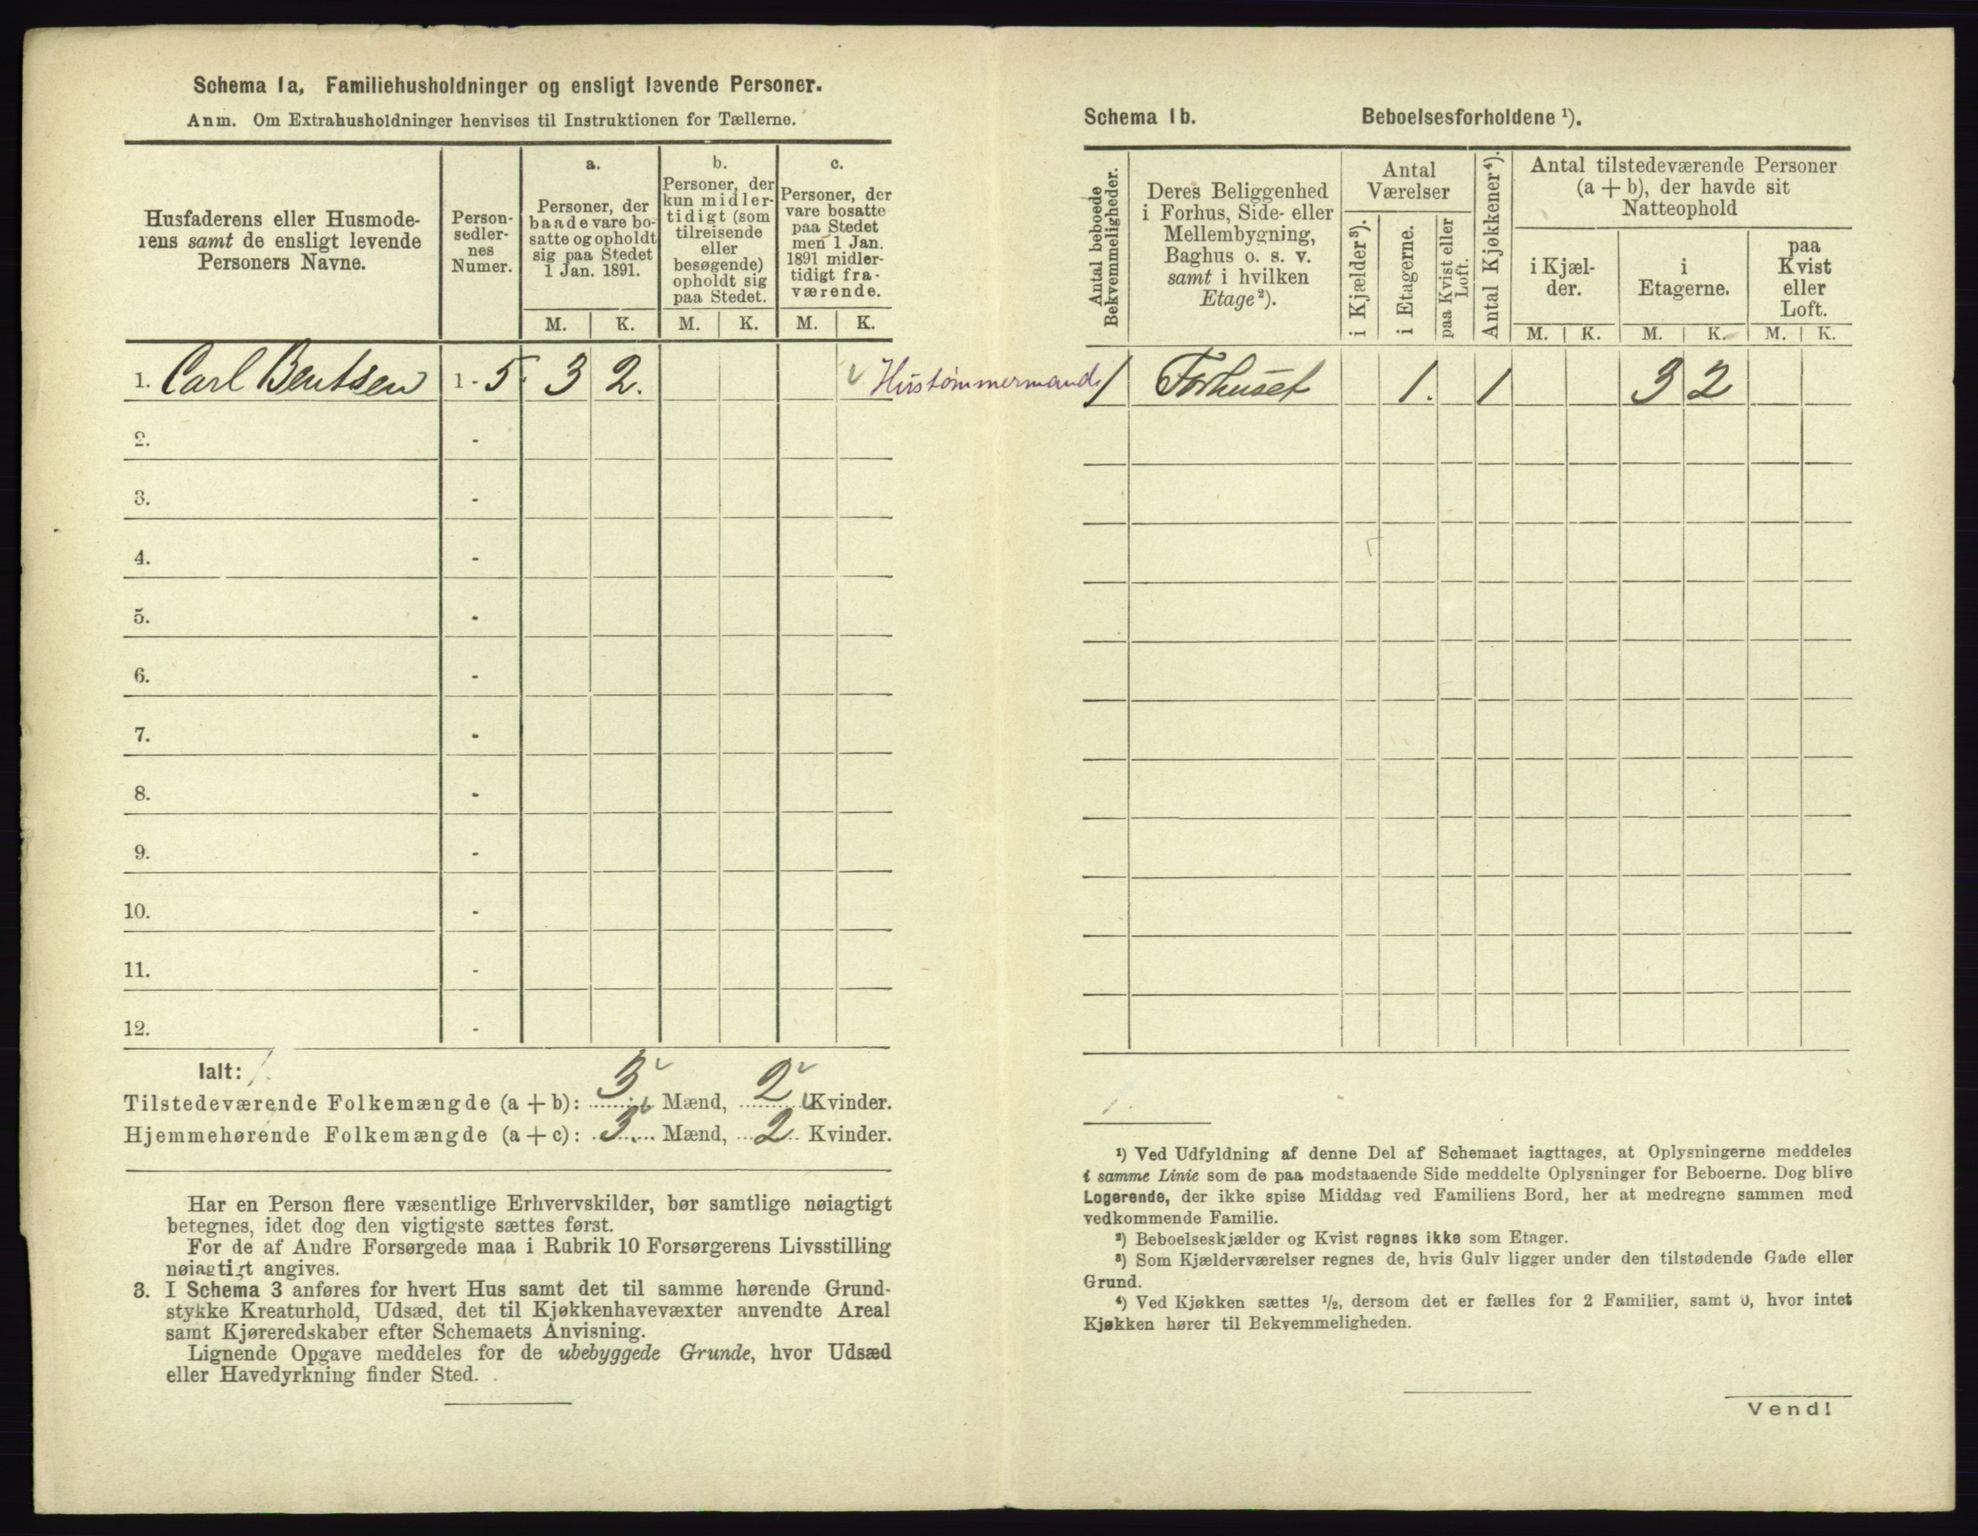 Schema 1a, Familiehusholdninger og ensligt levende Personer.
Anm. Om Extrahusholdninger henvises til Instruktionen for Tællerne.
Husfaderens eller Husmode-
rens samt de ensligt levende
Personers Navne.
Person-
sedler-
nes
Numer.
a.
Personer, der
baade vare bo-
satte og opholdt
sig paa Stedet
1 Jan. 1891.
b.
Personer, der
kun midler-
tidigt (som
tilreisende
eller
besøgende)
opholdt sig
paa Stedet.
c.
Personer, der
vare bosatte
paa Stedet
men 1 Jan.
1891 midler-
tidigt fra-
værende.
M. K. M. K. M. K.
1. Carl Bentsen 1 - 5. 3 2. Hustømmermand
2. -
3. -
4. -
5. -
6. -
7. -
8. -
9. -
10. -
11. -
12. -
Ialt: 1.
Tilstedeværende Folkemængde (a + b): 3 Mænd, 2 Kvinder.
Hjemmehørende Folkemængde (a + c): 3 Mænd, 2 Kvinder.
Har en Person flere væsentlige Erhvervskilder, bør samtlige nøiagtigt
betegnes, idet dog den vigtigste sættes først.
For de af Andre Forsørgede maa i Rubrik 10 Forsørgerens Livsstilling
nøiagtigt angives.
3. I Schema 3 anføres for hvert Hus samt det til samme hørende Grund-
stykke Kreaturhold, Udsæd, det til Kjøkkenhavevæxter anvendte Areal
samt Kjøreredskaber efter Schemaets Anvisning.
Lignende Opgave meddeles for de ubebyggede Grunde, hvor Udsæd
eller Havedyrkning finder Sted.
Schema 1b. Beboelsesforholdene ¹).
Antal beboede
Bekvemmeligheder.
Deres Beliggenhed
i Forhus, Side- eller
Mellembygning,
Baghus o. s. v.
samt i hvilken
Etage²).
Antal
Værelser
i Kjælder³).
i Etagerne.
paa Kvist eller
Loft.
Antal Kjøkkener⁴).
Antal tilstedeværende Personer
(a + b), der havde sit
Natteophold
i Kjæl-
der.
i
Etagerne.
paa
Kvist
eller
Loft.
M. K. M. K. M. K.
1 Forhuset 1. 1 3 2
1.
¹) Ved Udfyldning af denne Del af Schemaet iagttages, at Oplysningerne meddeles
i samme Linie som de paa modstaaende Side meddelte Oplysninger for Beboerne. Dog blive
Logerende, der ikke spise Middag ved Familiens Bord, her at medregne sammen med
vedkommende Familie.
²) Beboelseskjælder og Kvist regnes ikke som Etager.
³) Som Kjælderværelser regnes de, hvis Gulv ligger under den tilstødende Gade eller
Grund.
⁴) Ved Kjøkken sættes ½, dersom det er fælles for 2 Familier, samt 0, hvor intet
Kjøkken hører til Bekvemmeligheden.
Vend!